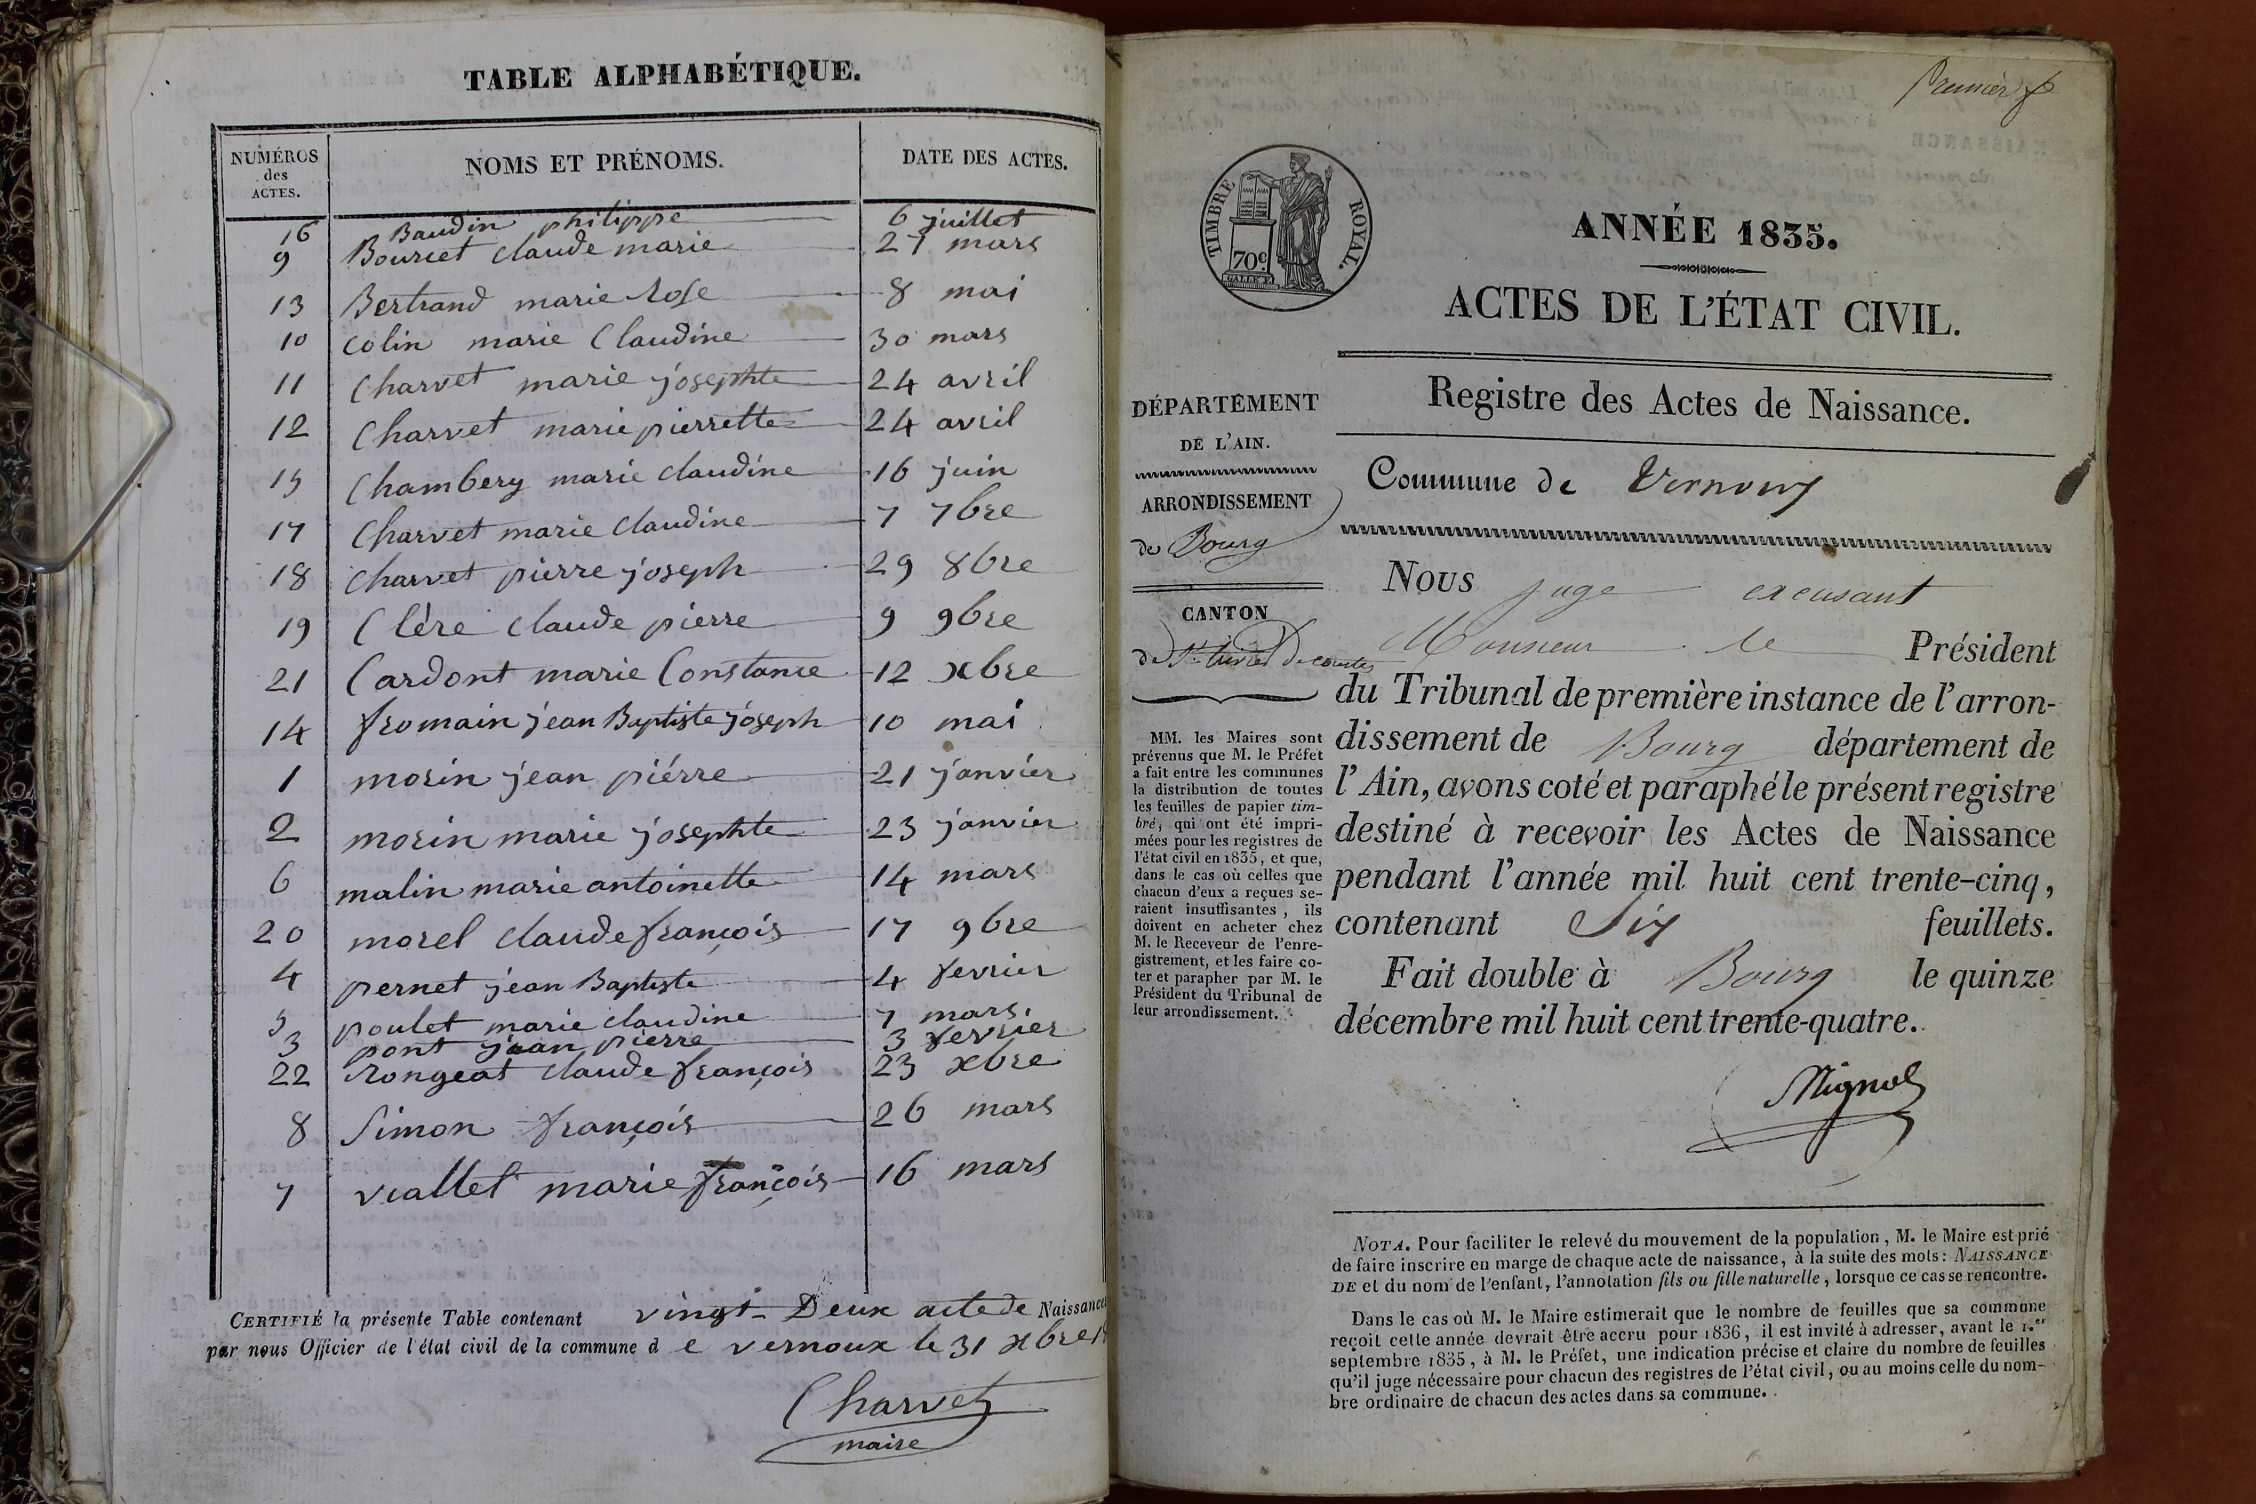 TABLE ALPHABÉTIQUE.
NUMÉROS
des
ACTES.
NOMS ET PRÉNOMS.
DATE DES ACTES.
16 Baudin philippe 6 juillet
9 Bourcet claude marie 27 mars
13 Bertrand marie rose 8 mai
10 colin marie Claudine 30 mars
11 Charvet marie josephte 24 avril
12 Charvet marie pierrette 24 avril
15 Chambery marie claudine 16 juin
17 Charvet marie claudine 7 7bre
18 charvet pierre joseph 29 8bre
19 Clére claude pierre 9 9bre
21 Cardont marie Constance 12 xbre
14 fromain jean Baptiste joseph 10 mai
1 morin jean piérre 21 janvier
2 morin marie josephte 23 janvier
6 malin marie antoinette 14 mars
20 morel claude françois 17 9bre
4 pernet jean Baptiste 4 fevrier
5 poulet marie claudine 7 mars
3 pont jean pierre 3 fevrier
22 Rongeat claude françois 23 xbre
8 Simon françois 26 mars
7 viallet marie françois 16 mars
CERTIFIÉ la présente Table contenant vingt-Deux acte de Naissance
par nous Officier de l'état civil de la commune d e vernoux le 31 xbre
Charvet
maire
Premier f
TIMBRE ROYAL.
70c
ANNÉE 1835.
ACTES DE L'ÉTAT CIVIL.
Registre des Actes de Naissance.
DÉPARTEMENT
DE L'AIN.
ARRONDISSEMENT
de Bourg
CANTON
de St trivier De courtes
MM. les Maires sont
prévenus que M. le Préfet
a fait entre les communes
la distribution de toutes
les feuilles de papier tim-
bré, qui ont été impri-
mées pour les registres de
l'état civil en 1835, et que,
dans le cas où celles que
chacun d'eux a reçues se-
raient insuffisantes, ils
doivent en acheter chez
M. le Receveur de l'enre-
gistrement, et les faire co-
ter et parapher par M. le
Président du Tribunal de
leur arrondissement.
Commune de Vernoux
Nous juge excusant
Monsieur le Président
du Tribunal de première instance de l'arron-
dissement de Bourg département de
l'Ain, avons coté et paraphé le présent registre
destiné à recevoir les Actes de Naissance
pendant l'année mil huit cent trente-cinq,
contenant Six feuillets.
Fait double à Bourg le quinze
décembre mil huit cent trente-quatre.
Mignot
NOTA. Pour faciliter le relevé du mouvement de la population, M. le Maire est prié
de faire inscrire en marge de chaque acte de naissance, à la suite des mots: NAISSANCE
DE et du nom de l'enfant, l'annotation fils ou fille naturelle, lorsque ce cas se rencontre.
Dans le cas où M. le Maire estimerait que le nombre de feuilles que sa commune
reçoit cette année devrait être accru pour 1836, il est invité à adresser, avant le 1.er
septembre 1835, à M. le Préfet, une indication précise et claire du nombre de feuilles
qu'il juge nécessaire pour chacun des registres de l'état civil, ou au moins celle du nom-
bre ordinaire de chacun des actes dans sa commune.